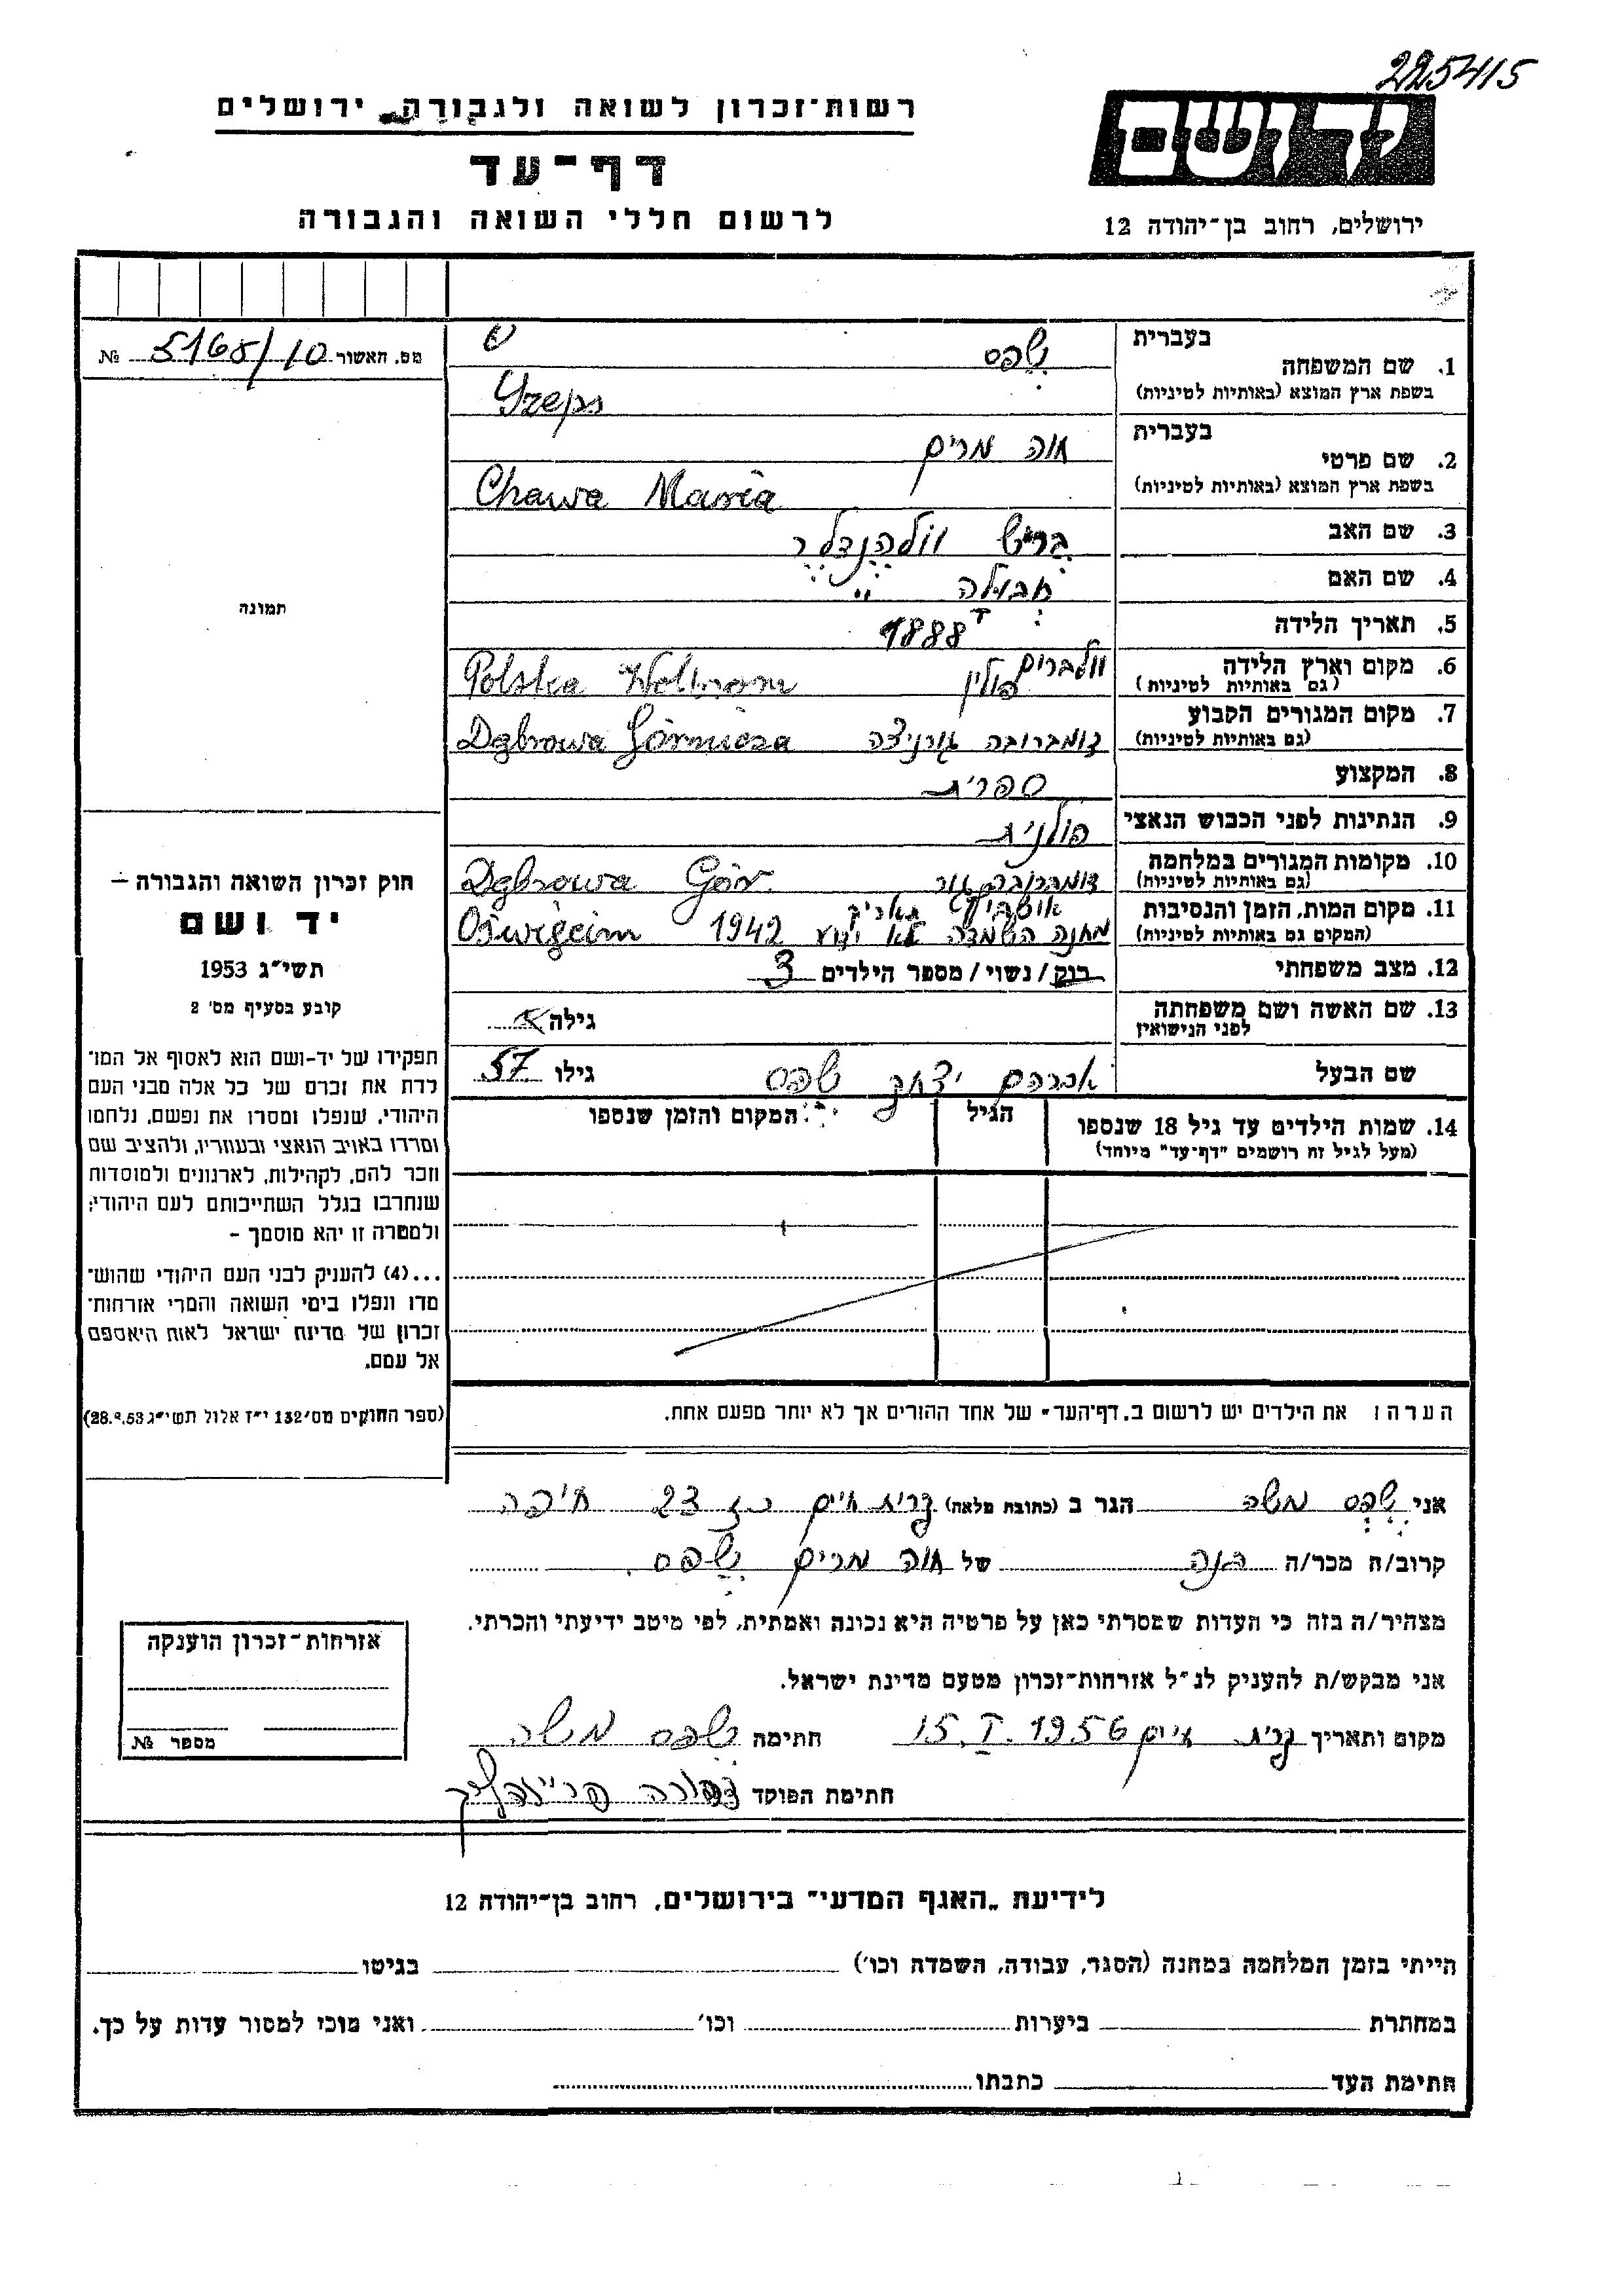 225415
רשות־זכרון לשואה ולגבורה, ירושלים
דף־עד
לרשום חללי השואה והגבורה
יד ושם
ירושלים, רחוב בן־יהודה 12
מס. האשור 5165/10 №
תמונה
חוק זכרון השואה והגבורה –
יד ושם
תשי״ג 1953
קובע בסעיף מס׳ 2
תפקידו של יד-ושם הוא לאסוף אל המו־
לדת את זכרם של כל אלה מבני העם
היהודי, שנפלו ומסרו את נפשם, נלחמו
ומרדו באויב הנאצי ובעוזריו, ולהציב שם
וזכר להם, לקהילות, לארגונים ולמוסדות
שנחרבו בגלל השתייכותם לעם היהודי;
ולמטרה זו יהא מוסמך –
...(4) להעניק לבני העם היהודי שהוש־
מדו ונפלו בימי השואה והמרי אזרחות־
זכרון של מדינת ישראל לאות היאספם
אל עמם.
(ספר החוקים מס׳ 132 י״ז אלול תשי״ג 28.8.53)
בעברית
1. שם המשפחה שפס
בשפת ארץ המוצא (באותיות לטיניות)
בעברית
2. שם פרטי חוה מרים
בשפת ארץ המוצא (באותיות לטיניות) Chawa Maria
3. שם האב
4. שם האם
5. תאריך הלידה 1888
6. מקום וארץ הלידה וולברום פולין Polska Wolbrom
(גם באותיות לטיניות)
7. מקום המגורים הקבוע דומברובה גורניצה Dąbrowa Górnicza
(גם באותיות לטיניות)
8. המקצוע ספרית
9. הנתינות לפני הכבוש הנאצי פולנית
10. מקומות המגורים במלחמה דומברובה גור Dąbrowa Gór.
(גם באותיות לטיניות)
11. מקום המות, הזמן והנסיבות אושביץ תאריך
(המקום גם באותיות לטיניות) מחנה השמדה לא ידוע 1942 Oświęcim
12. מצב משפחתי רוק / נשוי / מספר הילדים 3
13. שם האשה ושם משפחתה גילה
לפני הנישואין
שם הבעל אברהם יצחק שפס גילו 57
14. שמות הילדים עד גיל 18 שנספו הגיל המקום והזמן שנספו
(מעל לגיל זה רושמים "דף־עד" מיוחד)
הערה: את הילדים יש לרשום ב„דף־העד״ של אחד ההורים אך לא יותר מפעם אחת.
אני שפס משה הגר ב (כתובת מלאה) קרית חיים 23 חיפה
קרוב/ה מכר/ה בנה של חוה מרים שפס
מצהיר/ה בזה כי העדות שמסרתי כאן על פרטיה היא נכונה ואמתית, לפי מיטב ידיעתי והכרתי.
אני מבקש/ת להעניק לנ״ל אזרחות־זכרון מטעם מדינת ישראל.
מקום ותאריך קרית חיים 15.I.1956 חתימה שפס משה
חתימת הפוקד
אזרחות־זכרון הוענקה
מספר №
לידיעת „האגף המדעי״ בירושלים, רחוב בן־יהודה 12
הייתי בזמן המלחמה במחנה (הסגר, עבודה, השמדה וכו׳) בגיטו
במחתרת ביערות וכו׳ ואני מוכן למסור עדות על כך.
חתימת העד כתבתו